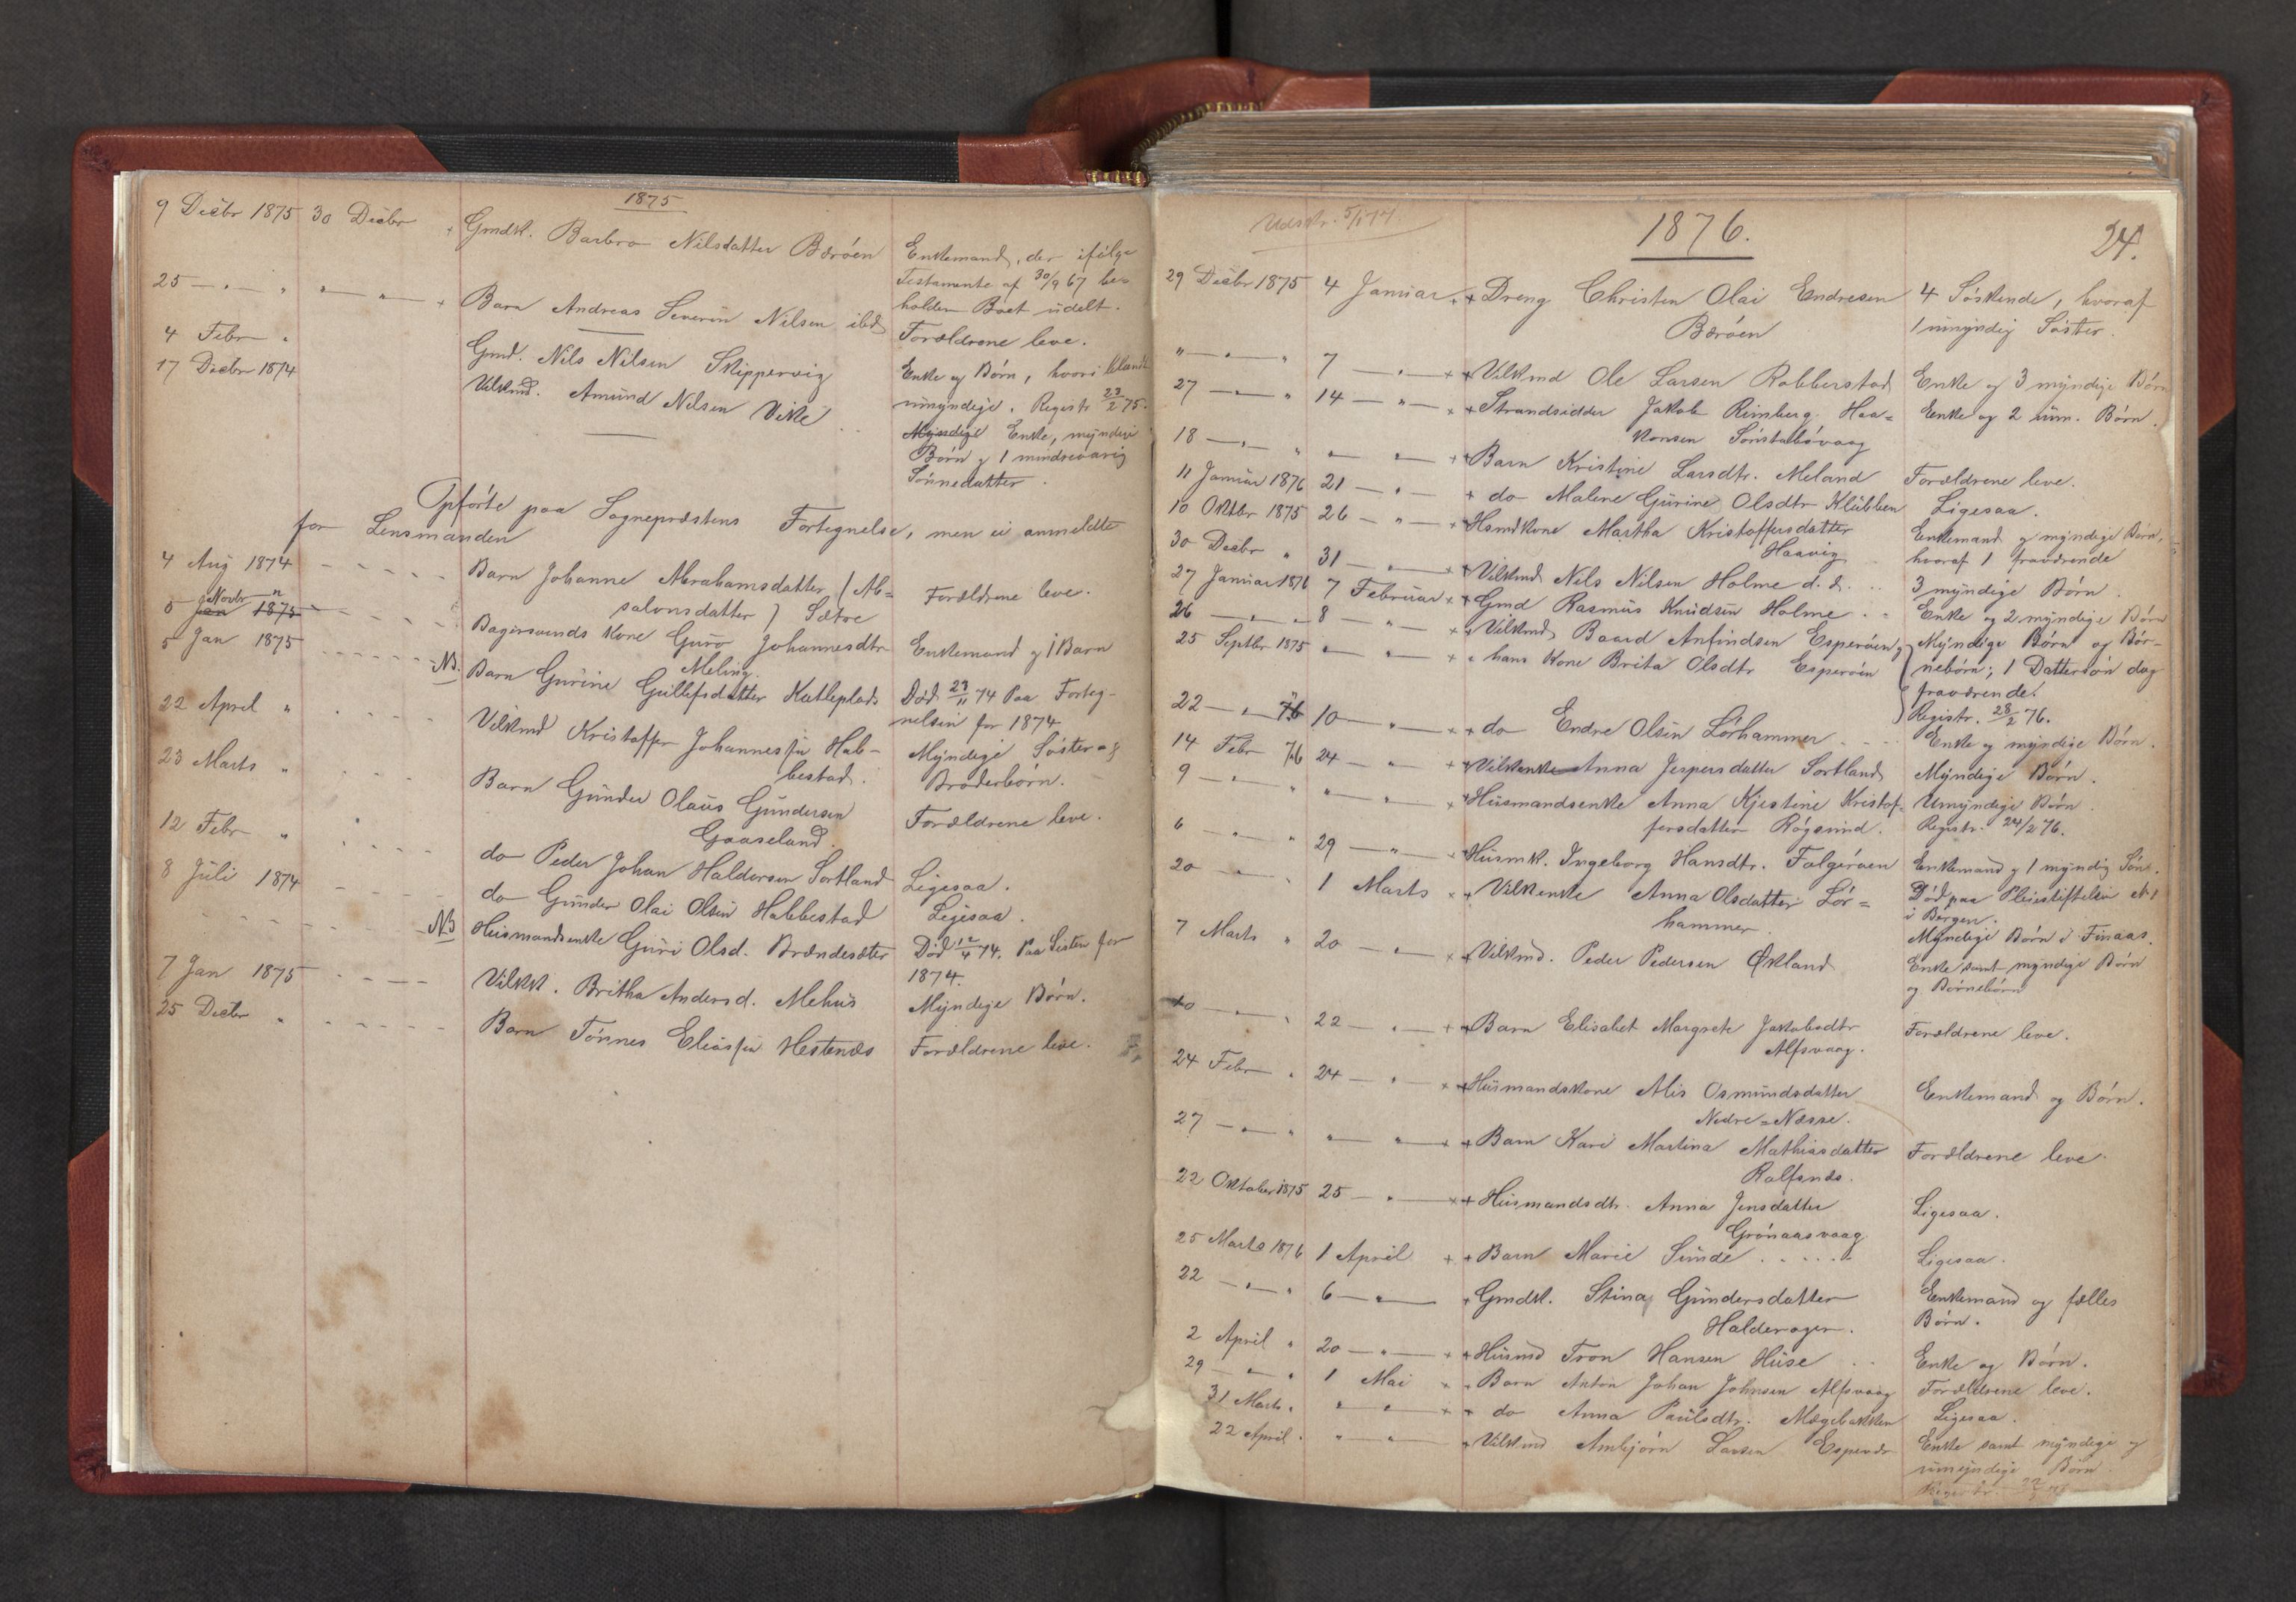 1875
9 Decbr 1875 30 Decbr + Gmdk. Barbro Nilsdatter Børøen Enkemand, der ifølge
Testamente af 30/9 67 be-
holder Boet udelt.
25 — " — " " — " — + Barn Andreas Severin Nilsen ibd Forældrene leve.
4 Febr " Gmd. Nils Nilsen Skippervig Enke og Børn, hvori blandt
umyndige. Registr 23/2 75.
17 Decbr 1874 Vilkmd. Amund Nilsen Vike Myndige Enke, myndige
Børn og 1 mindreaarig
Sønnedatter.
Opførte paa Sognepræstens Fortegnelse, men ei anmeldte
for Lensmanden
4 Aug 1874 - - - - - Barn Johanne Abrahamsdatter (Ab- Forældrene leve.
salonsdatter) Sætre
Novbr "
5 Jan 1875 Bagersvends Kone Guro Johannesdtr Enkemand og 1 Barn
Meling.
5 Jan 1875 - - - - - NB. Barn Gurine Gullefsdatter Katleplads Død 23/11 74 Paa Forteg-
nelsen for 1874
22 April " - - - - Vilkmd Kristoffer Johannesen Hab- Myndige Søster- og
bestad. Broderbørn.
23 Marts " - - - Barn Gunder Olaus Gundersen Forældrene leve.
Gaaseland.
12 Febr " - - - - do Peder Johan Haldorsen Sortland Ligesaa.
8 Juli 1874 - - - - do Gunder Olai Olsen Habbestad Ligesaa.
- - - - - NB Husmandsenke Guri Olsd. Brændesæter Død 12/4 74. Paa Listen for
1874.
7 Jan 1875 - - - Vilkk. Britha Andersd. Mehus Myndige Børn.
25 Decbr " - - - - - Barn Tønnes Eliassen Hestenæs Forældrene leve.
Udskr. 5/1 77.
1876.
24.
29 Decbr 1875 4 Januar + + Dreng Christen Olai Endresen 4 Søskende, hvoraf
Børøen 1 umyndig Søster.
" — " — " 7 — " — + + Vilkmd Ole Larsen Robberstad Enke og 3 myndige Børn
27 — " — " 14 — " — + + Strandsidder Jakob Reimberg Haa- Enke og 2 um. Børn.
konsen Sønstabøvaag
18 — " — " " — " — + + Barn Kristine Larsdtr. Meland Forældrene leve.
11 Januar 1876 21 — " — + do Malene Gurine Olsdtr Klubben Ligesaa.
10 Oktbr 1875 26 — " — + Hsmdkone Martha Kristoffersdatter Enkemand og myndige Børn,
Haavig hvoraf 1 fraværende
30 Decbr " 31 — " — + + Vilkmd Nils Nilsen Holme d. æ. 3 myndige Børn.
27 Januar 1876 7 Februar + + Gmd Rasmus Knudsen Holme Enke og 2 myndige Børn
26 — " — " 8 — " — + + Vilkmd Baard Anfindsen Esperøen og Myndige Børn og Bør-
25 Septbr 1875 " — " — + " hans Kone Brita Olsdtr Esperøen nebørn; 1 Dattersøn dog
fraværende.
Registr. 28/2 76.
22 — " 76 10 — " — + + do Endre Olsen Lørhammer Enke og myndige Børn.
14 Febr 76 24 — " — + + Vilkenke Anna Jespersdatter Sortland Myndige Børn.
9 — " — " " — " — + + Husmandsenke Anna Kjestine Kristof- Umyndige Børn.
fersdatter Røgsund. Registr. 24/2 76.
6 — " — " 29 — " — + Husmk. Ingeborg Hansdtr. Folgerøen Enkemand og 1 myndig Søn.
20 — " — " 1 Marts + + Vilkenke Anna Olsdatter Lør- Død paa Pleiestiftelsen No 1
hammer i Bergen.
Myndige Børn i Finaas.
7 Marts " 20 — " — + + Vilkmd. Peder Pedersen Økland Enke samt myndige Børn
og Børnebørn
10 — " 22 — " — + + Barn Elisabet Margrete Jakobsdtr Forældrene leve.
Alfsvaag.
24 Febr " 24 — " — + + Husmandskone Alis Osmundsdatter Enkemand og Børn.
Nedre-Næsse.
27 — " — " " — " — + + Barn Kari Martina Mathiasdatter Forældrene leve.
Rolfsnæs.
22 Oktober 1875 25 — " — + + Husmandsdtr. Anna Jensdatter Ligesaa.
Grønaasvaag
25 Marts 1876 1 April + + Barn Marie Sunde . . . . . Ligesaa.
22 — " — " 6 — " — + Gmdk. Stina Gundersdatter Enkemand og fælles
Halderager. Børn.
2 April " 20 — " — + + Husmd Tron Hansen Huse Enke og Børn.
29 — " — " 1 Mai + + Barn Anton Johan Johnsen Alfsvaag Forældrene leve.
31 Marts " " — " — + + do Anna Paulsdtr. Møgebakken Ligesaa.
22 April " " — " — + Vilkmd Ambjørn Larsen Esperør Enke samt myndige og
umyndige Børn.